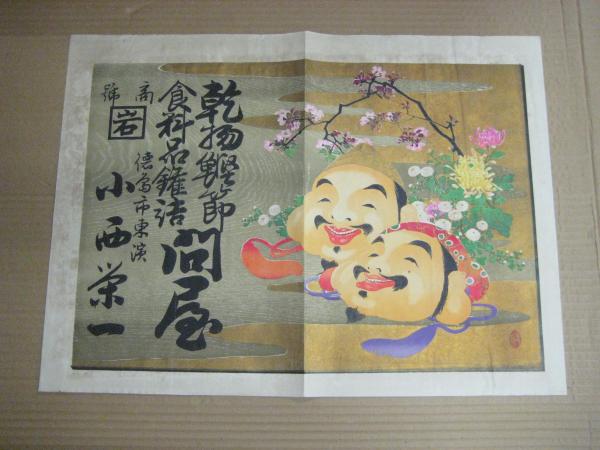 乾物鰹節
食料品鑵詰問屋
商號
岩
徳島市東濱
小西栄一